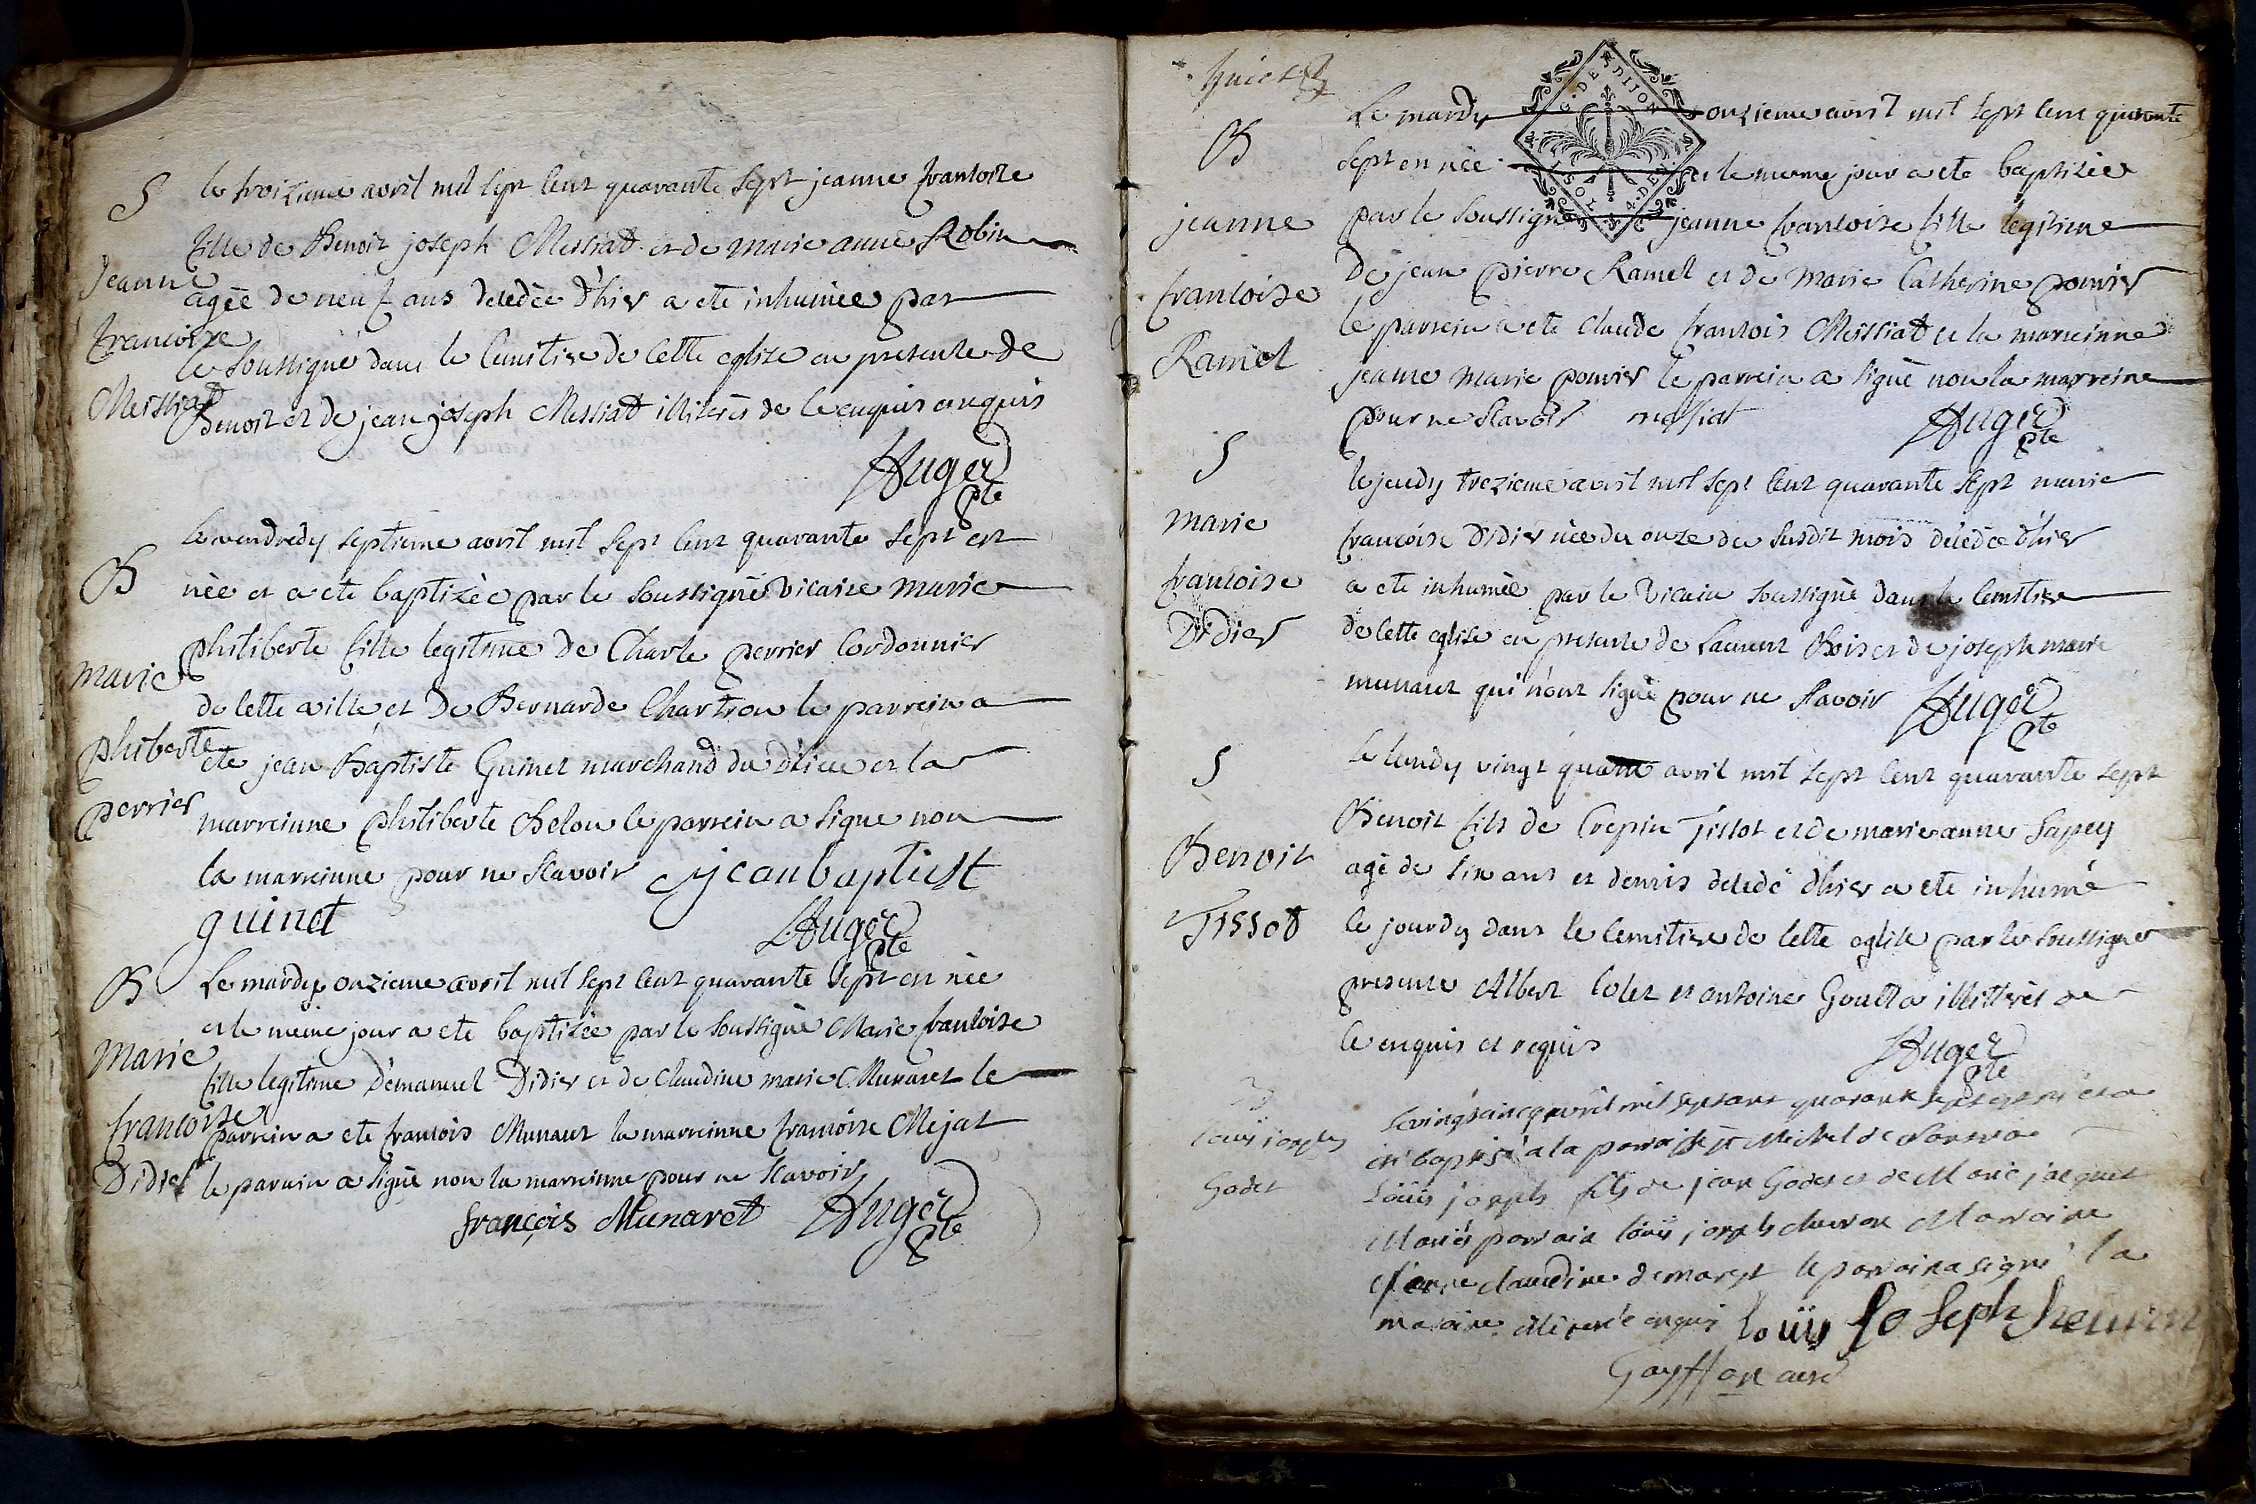 S
Jeanne
francoise
Messiat
le troizieme avril mil sept cent quarante sept jeanne francoise
fille de Benoit joseph Messiat et de marie anne Robin
agée de neuf ans decedée d'hier a ete inhumée par
le soussigné dans le cimetiere de cette eglise en presence de
Benoit et de jean joseph Messiat illiterés de ce enquis
Auger
pte
B
marie
philiberte
perrier
le vendredy septieme avril mil sept cent quarante sept est
née et a ete baptizée par le soussigné vicaire marie
philiberte fille legitime de Charle perrier cordonnier
de cette ville et de Bernarde Chartron le parrein a
ete jean Baptiste Guinet marchand du d'lieu et la
marreinne philiberte Belou le parrein a signe non
la marreinne pour ne scavoir jean baptist
guinet Auger
pte
B
Marie
francoise
Didier
Le mardy onzieme avril mil sept cent quarante sept est née
et le meme jour a ete baptizée par le soussigné Marie francoise
fille legitime d'emanuel Didier et de Claudine marie Munaret le
parrein a ete francois Munaret la marreinne francoise Mejat
le parrein a signé non la marreinne pour ne scavoir
françois Munaret Auger
pte
huict
G. DE DIJON
B
jeanne
francoise
Ramel
Le mardy onzieme avril mil sept cent quarante
sept est née et le meme jour a ete baptizée
par le soussigné jeanne francoise fille legitime
de jean pierre Ramel et de marie Catherine pouvier
le parrein a ete claude francois Messiat et la marreinne
jeanne marie pouvier le parrein a signé non la marreine
pour ne scavoir messiat Auger
pte
S
marie
francoise
Didier
le jeudy trezieme avril mil sept cent quarante sept marie
francoise Didier née du onze du susdit mois decedée d'hier
a ete inhumée par le vicaire soussigné dans le cemitiere
de cette eglise en presence de Laurent Bois et de joseph marie
munaret qui n'ont signé pour ne scavoir Auger
pte
S
Benoit
Tissot
Le lundy vingt quatre avril mil sept cent quarante sept
Benoit fils de Crepin Tissot et de marie anne Sapey
agé de six ans et demis decedé d'hier a ete inhumé
ce jourdy dans le cemitiere de cette eglise par le soussigné
presence Albert Colet et antoine Goutta illitterés de
ce enquis et requis Auger
pte
B
louis joseph
Godet
Le vingt cinq avril mil sept cent quarante sept est né et a
été baptisé a la paroisse st Michel de
Loüis joseph fils de jean Godet et de Marie jacquet
Mariés parrain loüis joseph Marraine
claudine demarest le parrain a signé la
maraine enquis loüis Joseph